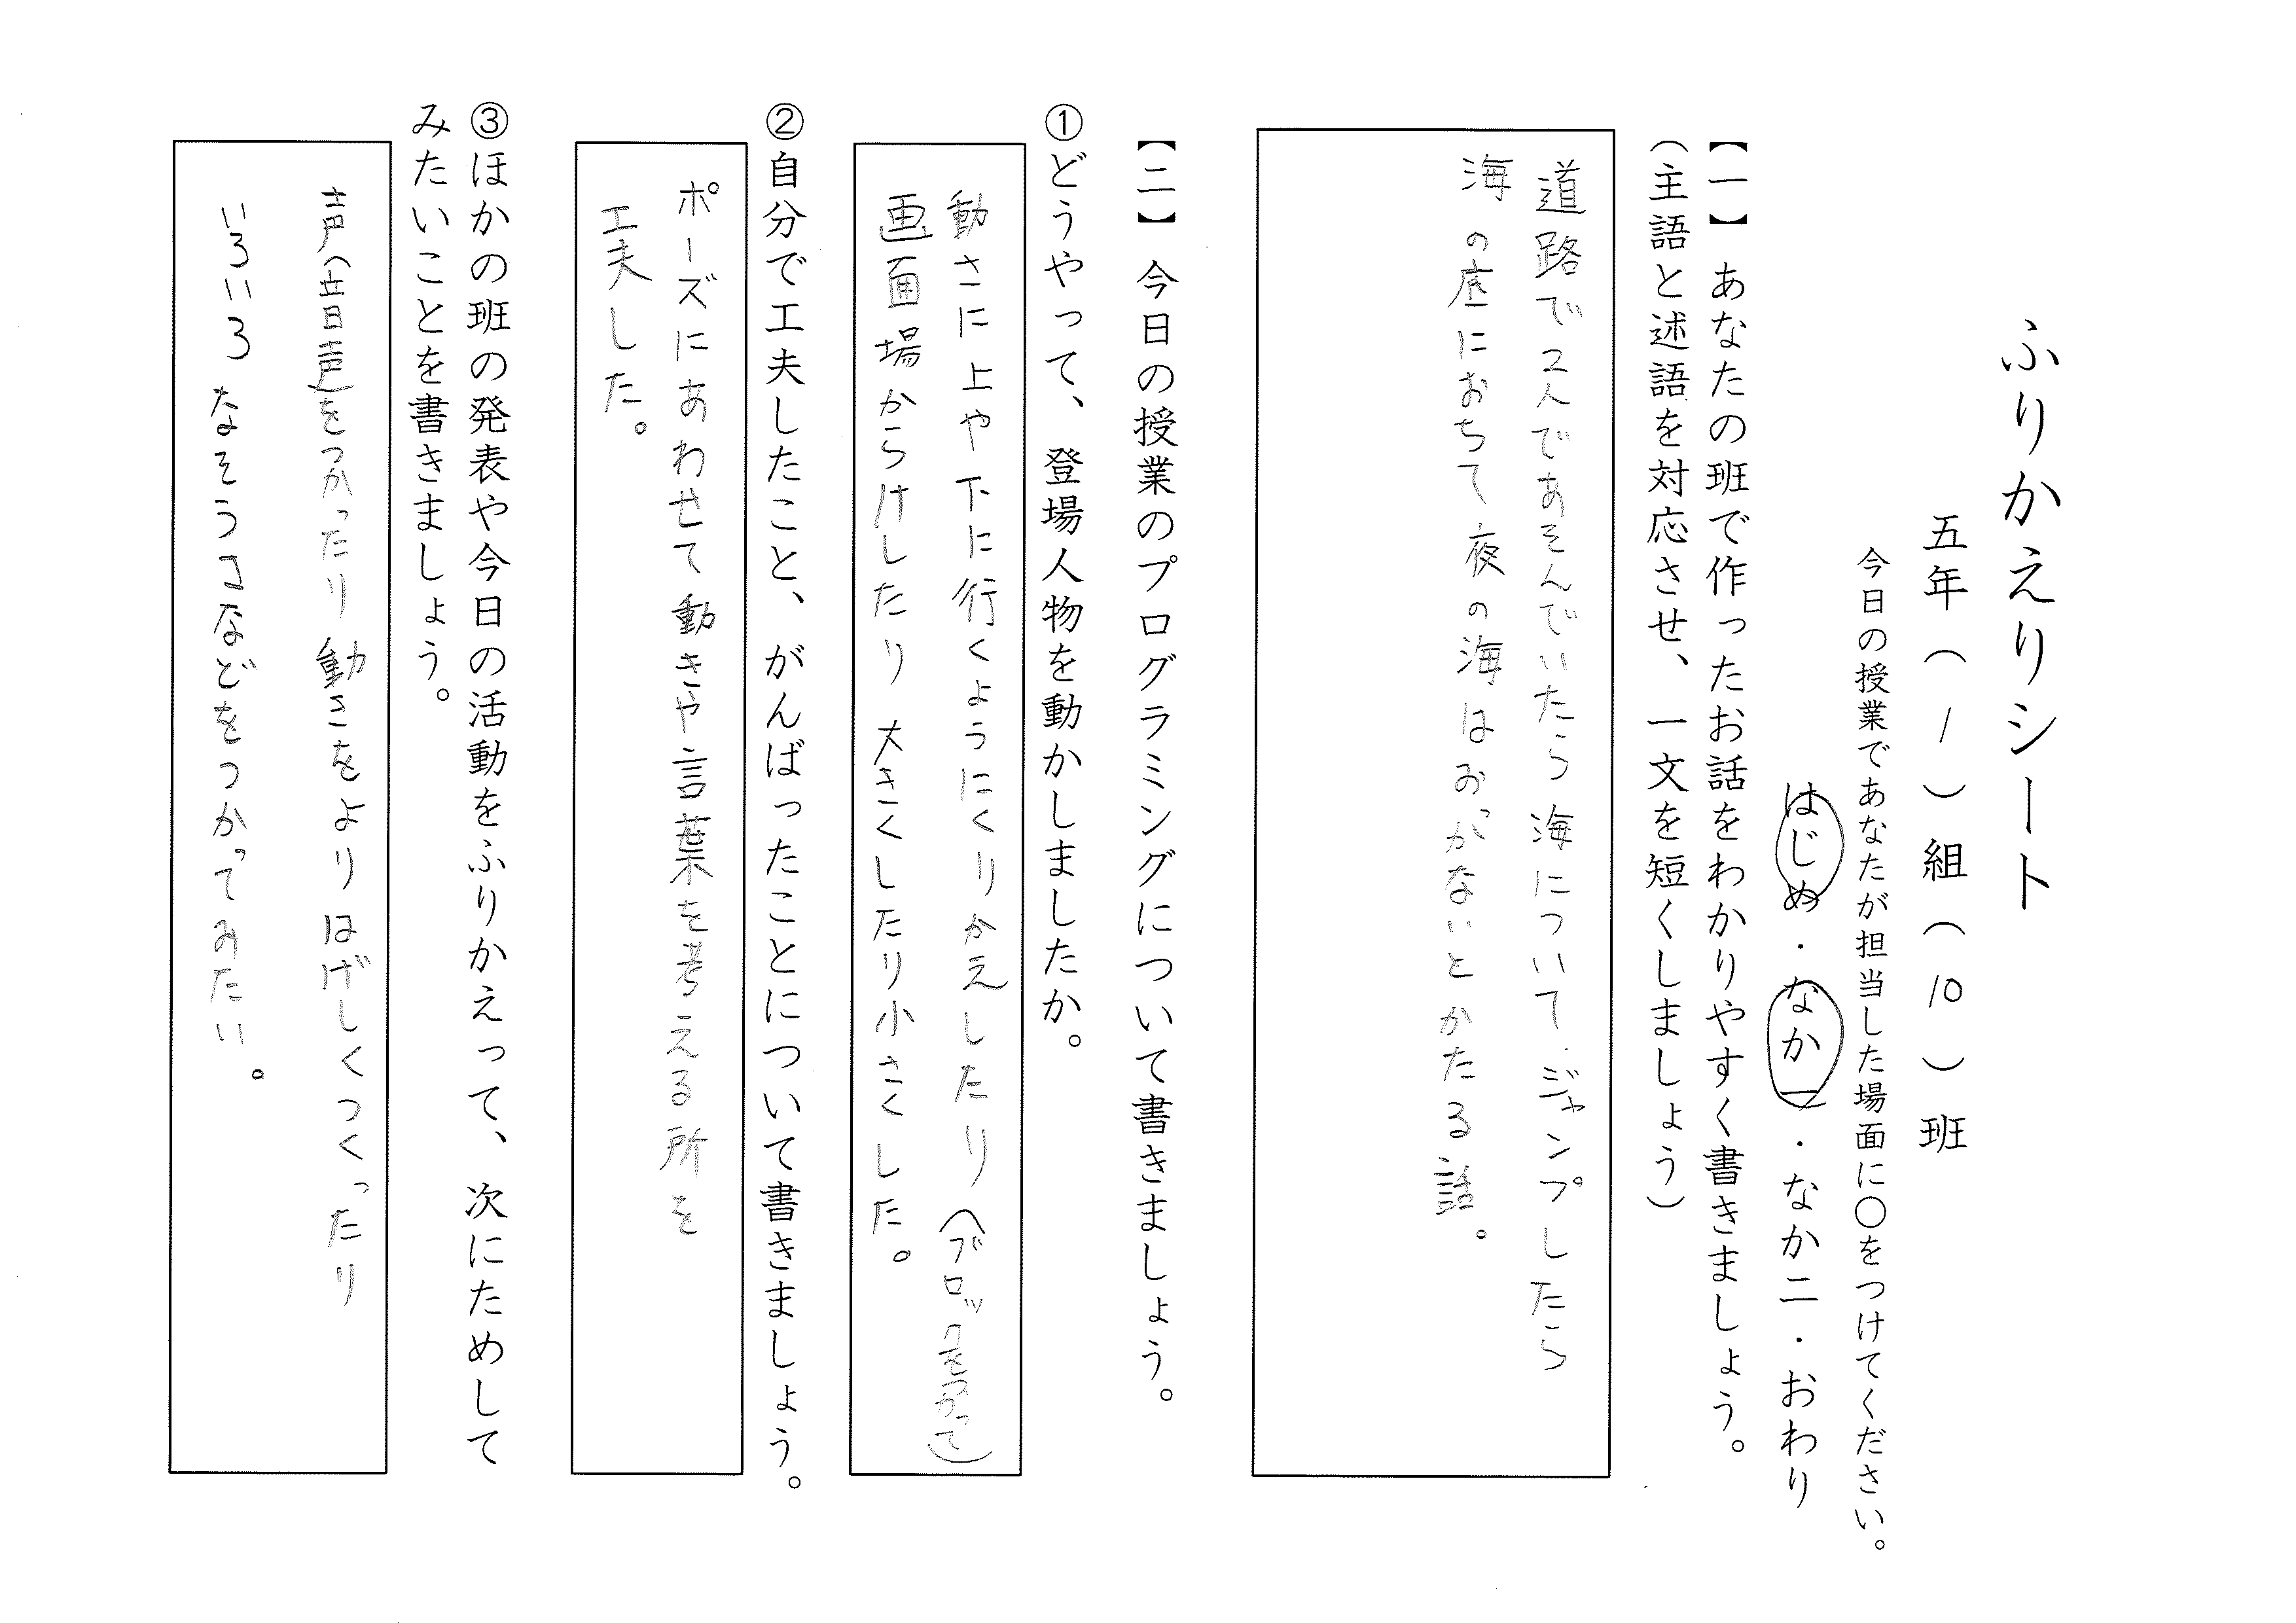 ふりかえりシート
五年(1)組(10)班
今日の授業であなたが担当した場面に〇をつけてください。
はじめ・なか一・なか二・おわり
【一】あなたの班で作ったお話をわかりやすく書きましょう。
(主語と述語を対応させ、一文を短くしましょう)
道路で2人であそんでいたら海についてジャンプしたら
海の底におちて夜の海はおっかないとかたる話。
【二】今日の授業のプログラミングについて書きましょう。
①どうやって、登場人物を動かしましたか。
動さに上や下に行くようにくりかえしたり(ブロックをつかって)
画面場からけしたり大きくしたり小さくした。
②自分で工夫したこと、がんばったことについて書きましょう。
ポーズにあわせて動きや言葉を考える所を
工夫した。
③ほかの班の発表や今日の活動をふりかえって、次にためして
みたいことを書きましょう。
声(音声)をつかったり動きをよりはげしくつくったり
いろいろなそうさなどをつかってみたい。